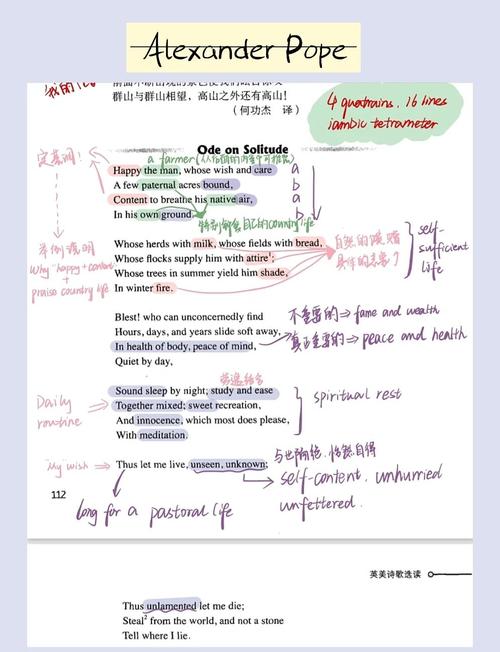 Alexander Pope
群山与群山相望，高山之外还有高山！
（何功杰 译）
4 quatrains. 16 lines
iambic tetrameter
Ode on Solitude
定基调！
a farmer
Happy the man, whose wish and care a
A few paternal acres bound, b
Content to breathe his native air, a
In his own ground. b
特别解释自己的country life
举例说明
Why "happy + content"
+
praise country life
Whose herds with milk, whose fields with bread,
Whose flocks supply him with attire¹;
Whose trees in summer yield him shade,
In winter fire.
自然的馈赠
self-
sufficient
life
Blest! who can unconcernedly find
Hours, days, and years slide soft away,
In health of body, peace of mind,
Quiet by day,
不重要的⇒ fame and wealth
真正重要的⇒ peace and health
劳逸结合
Daily
routine
Sound sleep by night; study and ease
Together mixed; sweet recreation,
And innocence, which most does please,
With meditation.
spiritual rest
My wish
Thus let me live, unseen, unknown;
与世隔绝，怡然自得
self-content. unhurried
unfettered.
112
long for a pastoral life
英美诗歌选读
Thus unlamented let me die;
Steal² from the world, and not a stone
Tell where I lie.